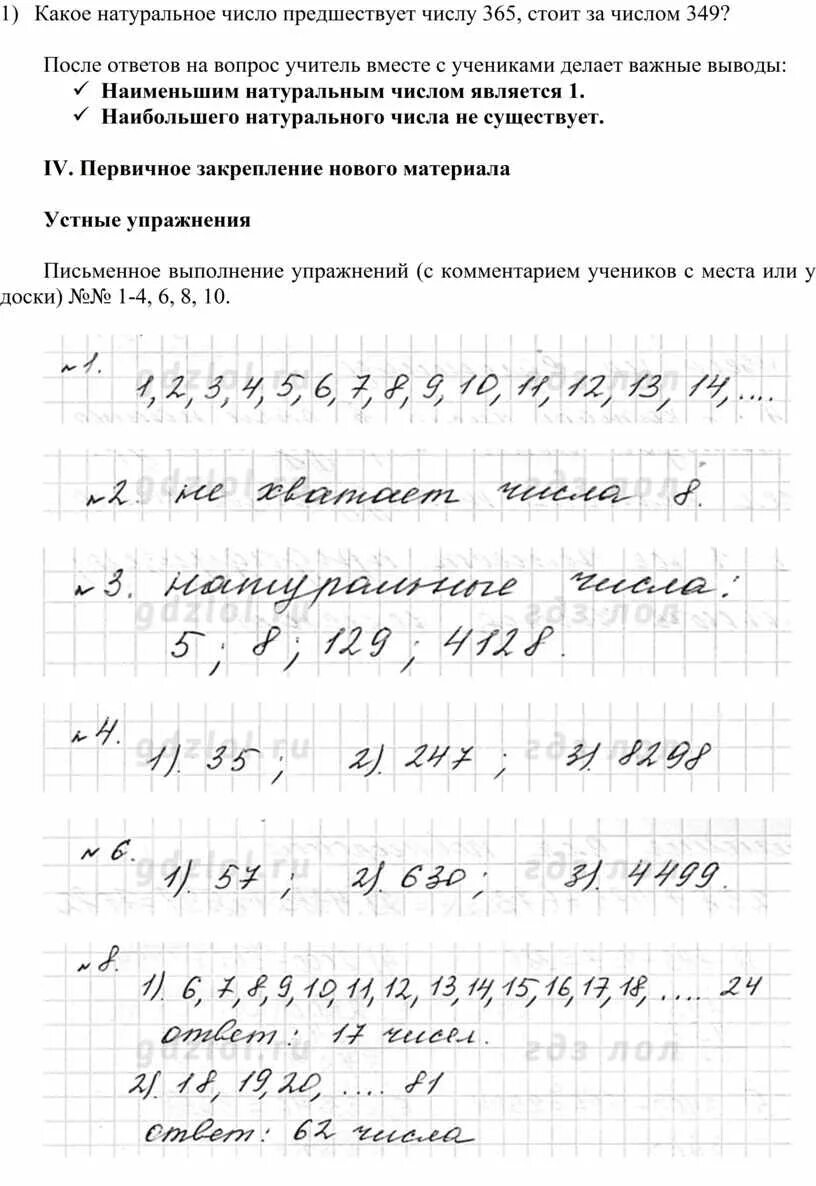 1) Какое натуральное число предшествует числу 365, стоит за числом 349?
После ответов на вопрос учитель вместе с учениками делает важные выводы:
✓ Наименьшим натуральным числом является 1.
✓ Наибольшего натурального числа не существует.
IV. Первичное закрепление нового материала
Устные упражнения
Письменное выполнение упражнений (с комментарием учеников с места или у
доски) №№ 1-4, 6, 8, 10.
№1.
1, 2, 3, 4, 5, 6, 7, 8, 9, 10, 11, 12, 13, 14, ....
gdzlol.ru гдз лол
№2. не хватает числа 8.
gdzlol.ru гдз лол
№3. натуральные числа:
gdzlol.ru гдз лол
5 ; 8 ; 129 ; 4128.
№4.
1). 35 ; 2). 247 ; 3). 8298
gdzlol.ru гдз лол
№6.
1). 57 ; 2). 630 ; 3). 4499.
gdzlol.ru гдз лол
№8.
1). 6, 7, 8, 9, 10, 11, 12, 13, 14, 15, 16, 17, 18, .... 24
ответ: 17 чисел.
gdzlol.ru гдз лол
2). 18, 19, 20, .... 81
ответ: 62 числа